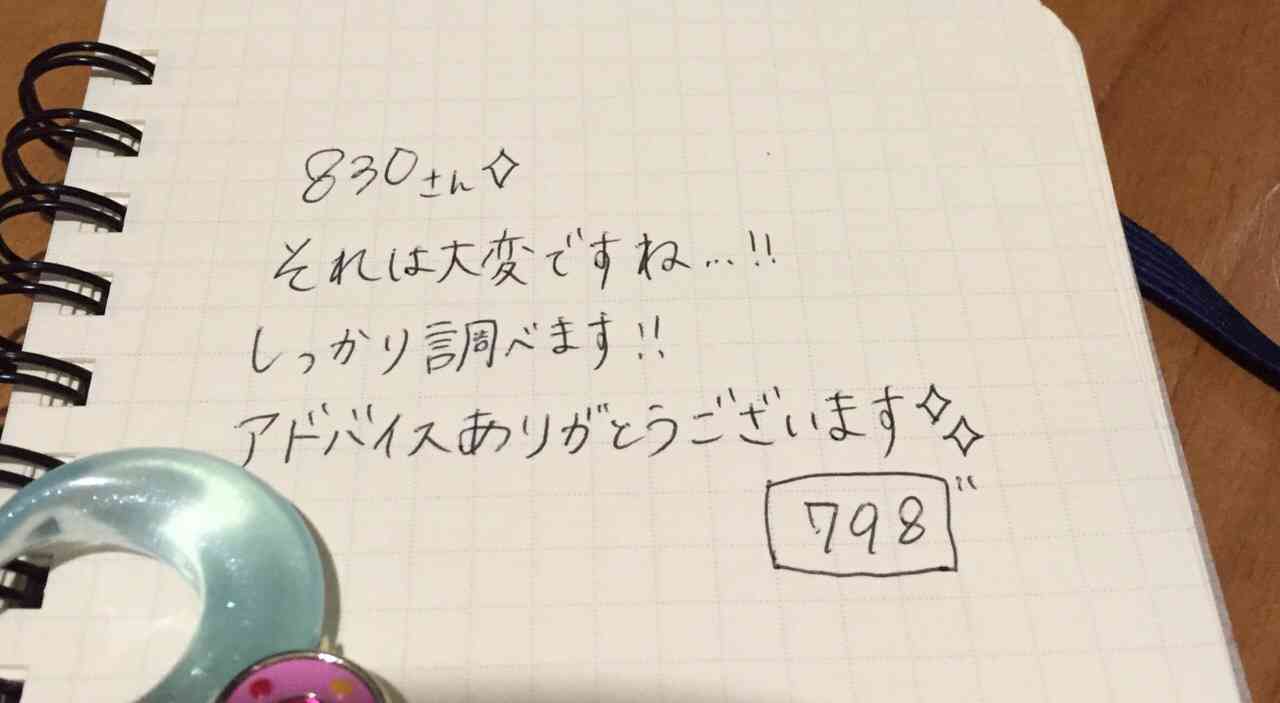 830さん✧
それは大変ですね…!!
しっかり調べます!!
アドバイスありがとうございます✧✧
798